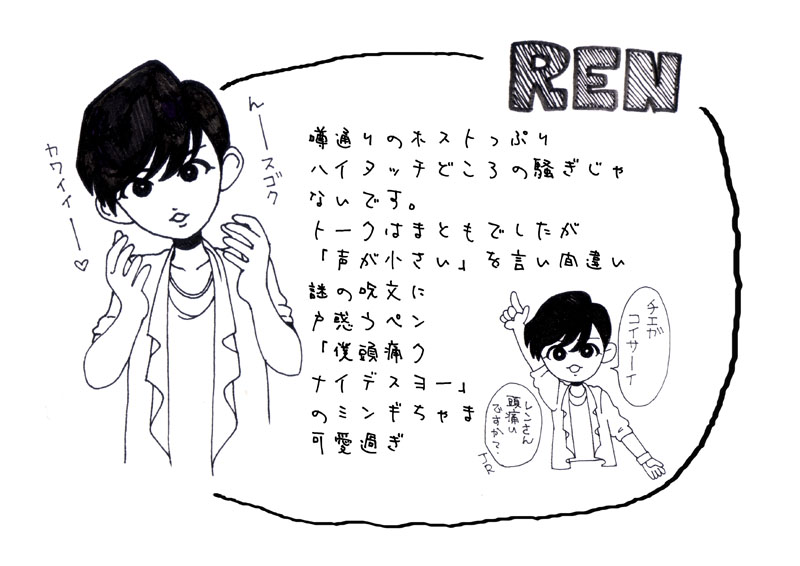 REN
んースゴク
カワイイー♡
噂通りのホストっぷり
ハイタッチどころの騒ぎじゃ
ないです。
トークはまともでしたが
「声が小さい」を言い間違い
謎の呪文に
戸惑うペン
「僕頭痛ク
ナイデスヨー」
のミンギちゃま
可愛過ぎ
チエが
コイサーイ
レンさん
頭痛い
ですか?
JR